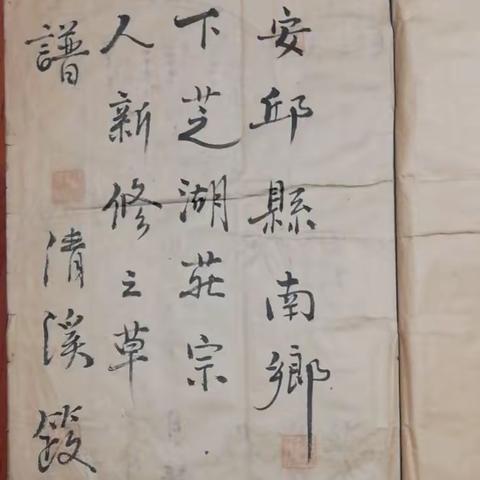 安邱縣南鄉
下芝湖莊宗
人新修之草
譜 清溪